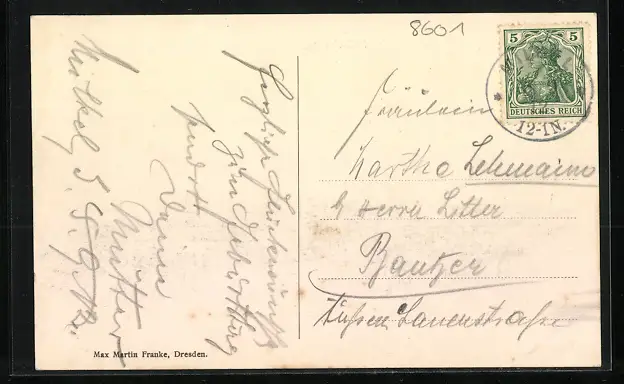 8601
5 5
DEUTSCHES REICH
12-1N.
Fräulein
Martha Lehmann
b Herrn Litter
Bautzen
äußere Lauenstraße
Glückwünsche
zum Geburtstag
sendet
Deine
Mutter
5. 9. 12.
Max Martin Franke, Dresden.